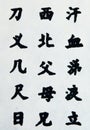 刀 西 汗
义 北 血
几 父 弟
尺 母
日 见 立